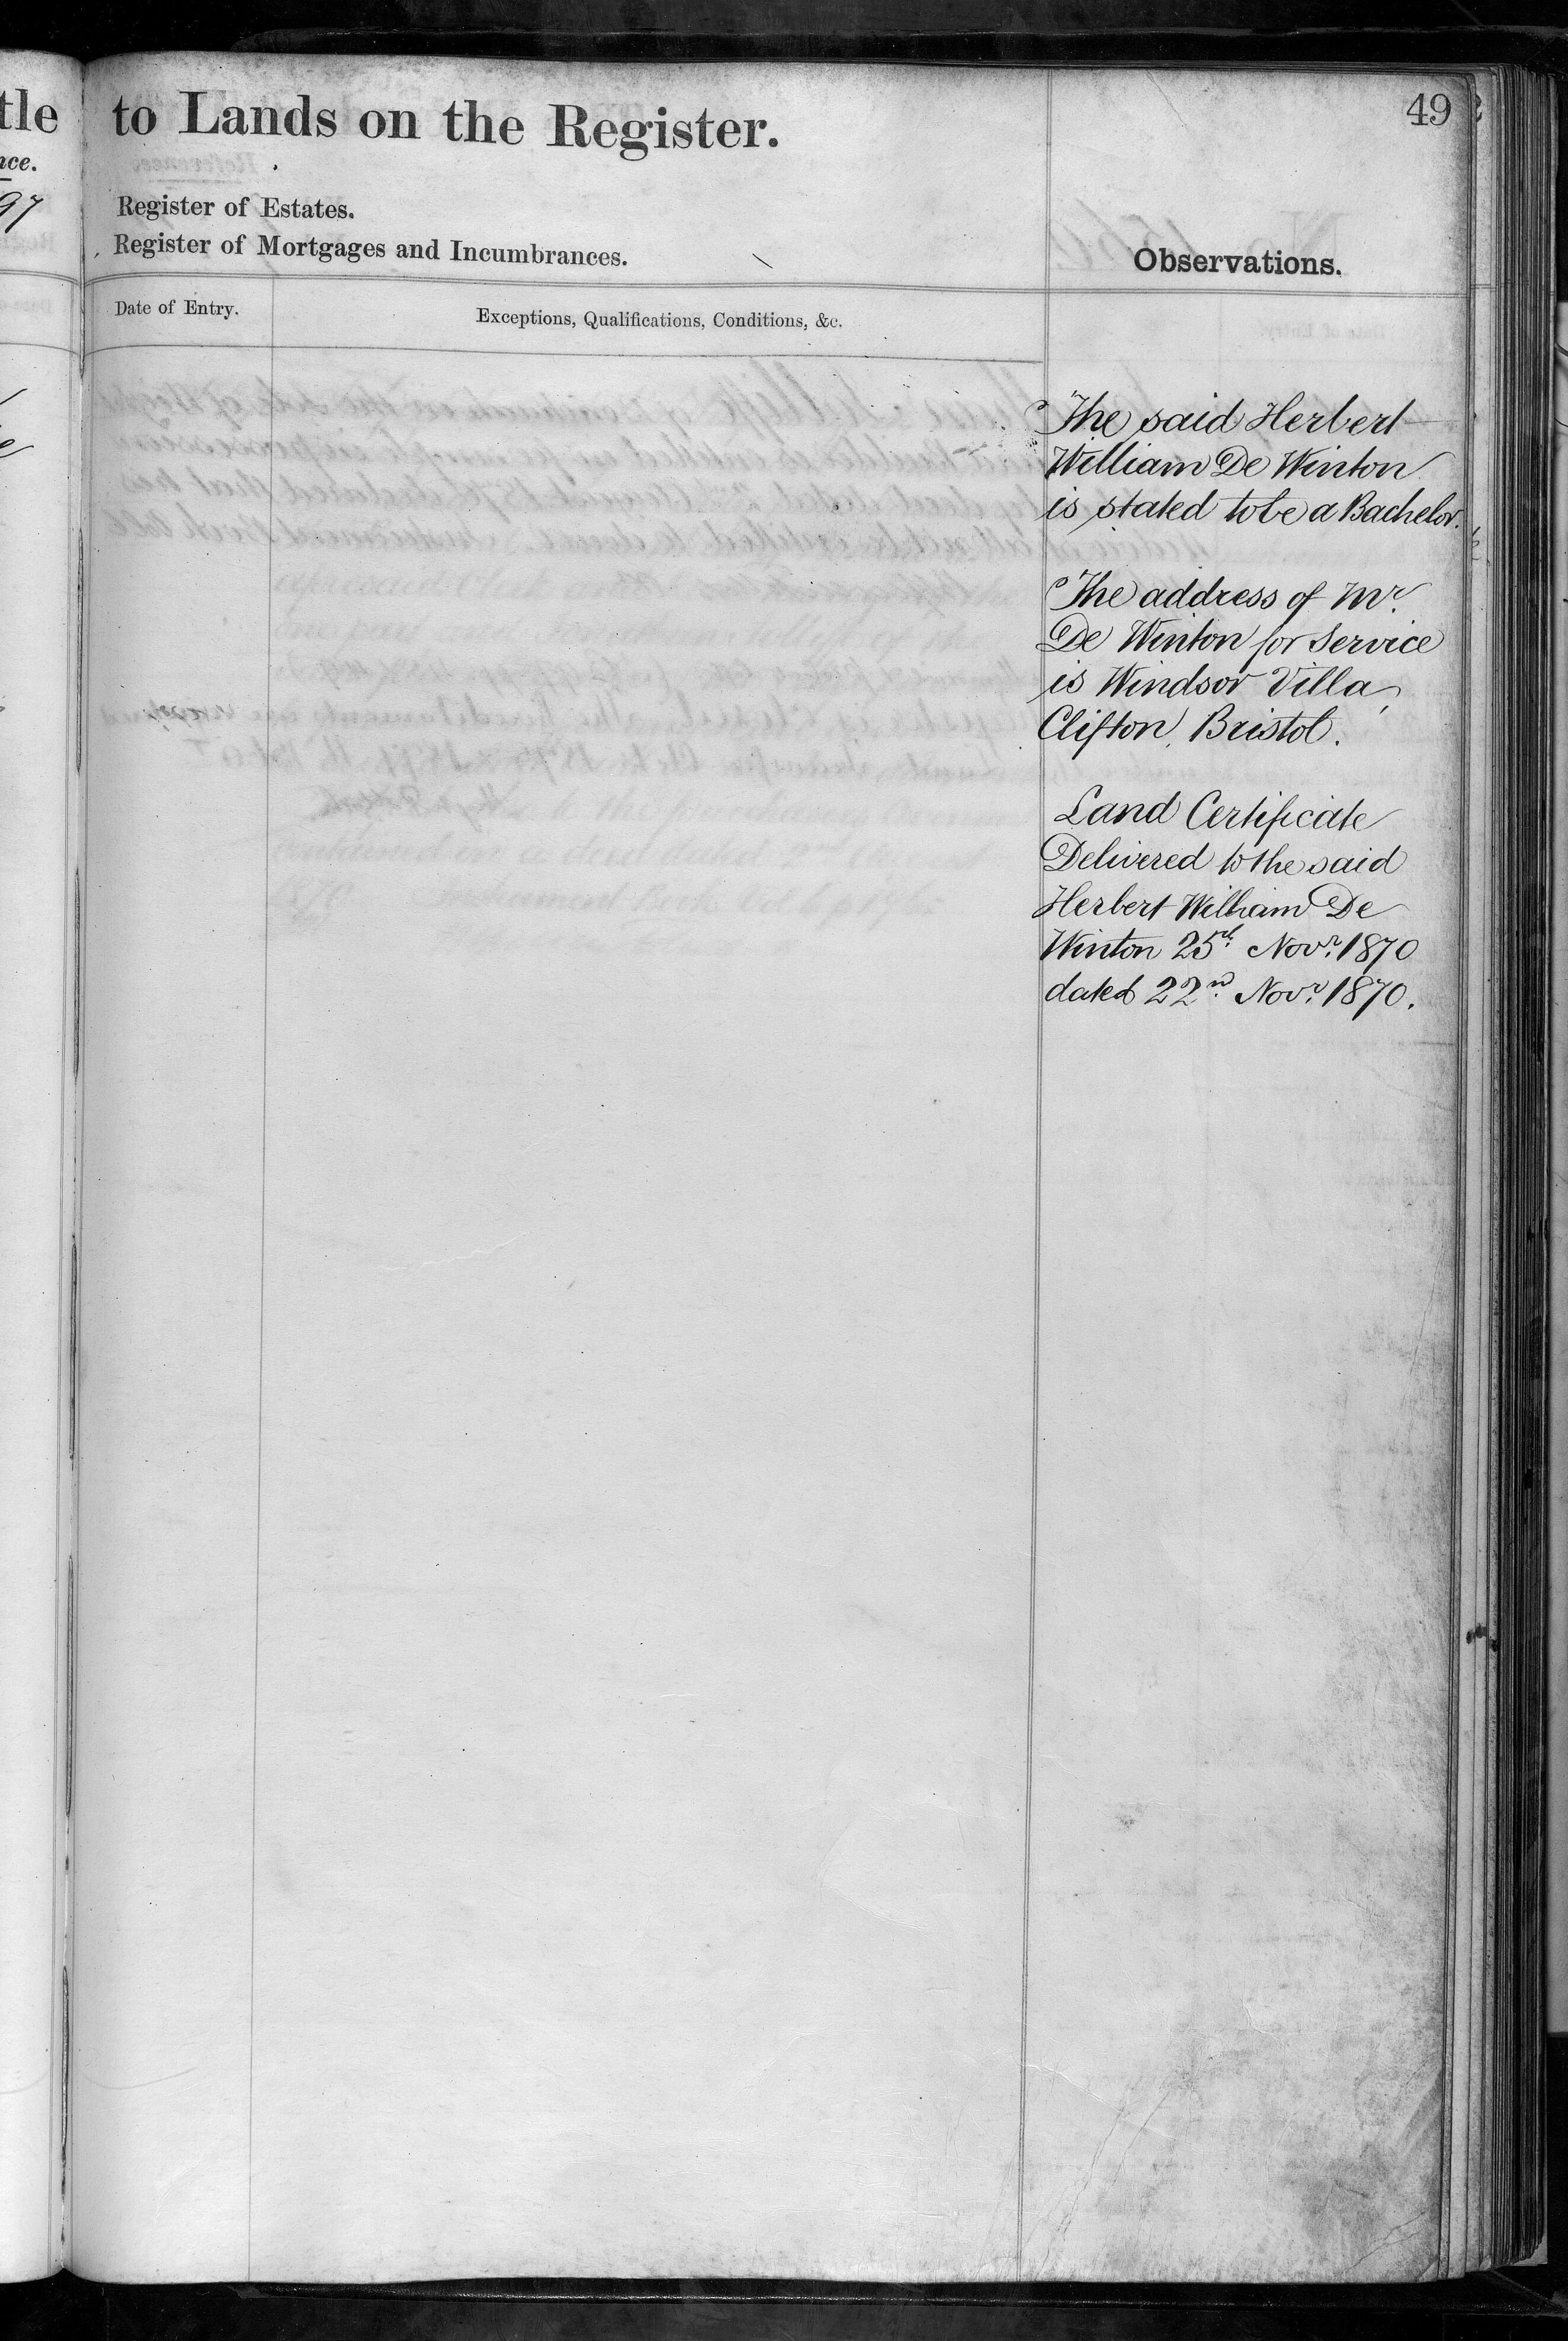 49
to Lands on the Register.
Register of Estates.
Register of Mortgages and Incumbrances.
Observations.
Date of Entry.
Exceptions, Qualifications, Conditions, &c.
The said Herbert
William De Winton
is stated to be a Bachelor.
The address of Mr.
De Winton for Service
is Windsor Villa,
Clifton, Bristol.
Land Certificate
Delivered to the said
Herbert William De
Winton 25th Novr. 1870
dated 22nd Novr. 1870.